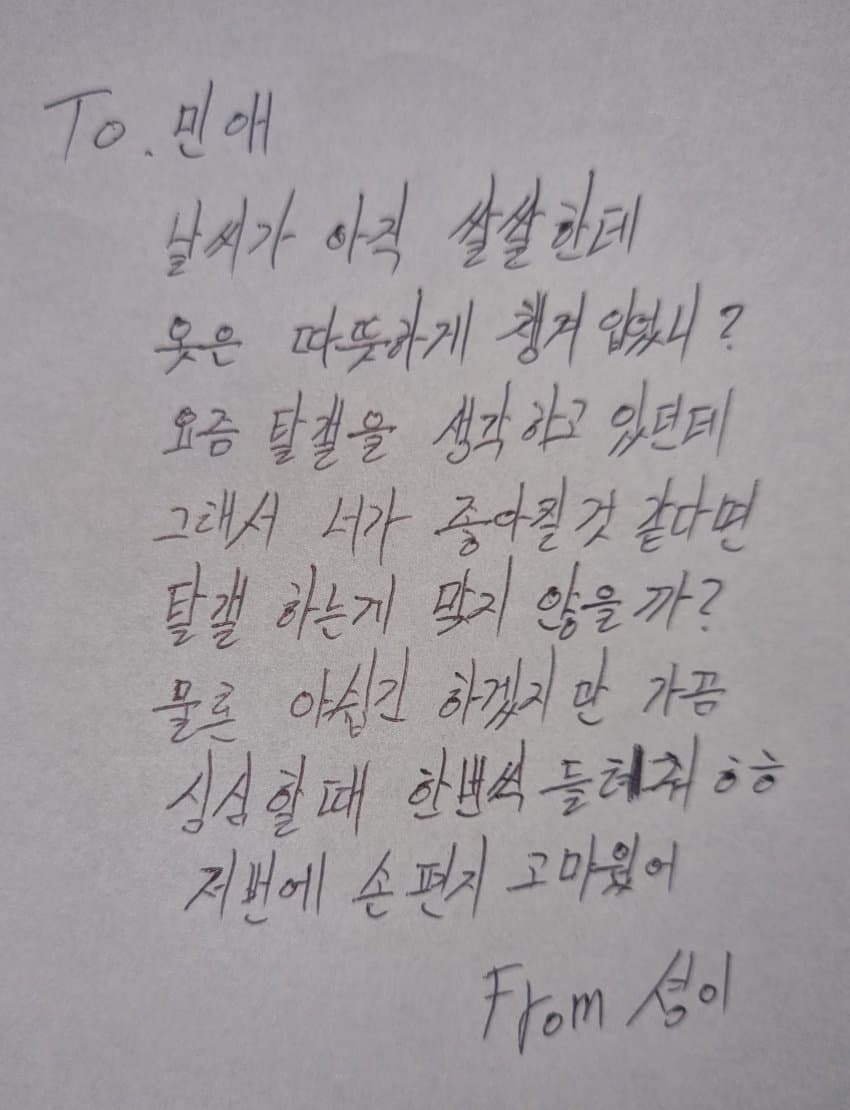 To. 민애
날씨가 아직 쌀쌀한데
옷은 따뜻하게 챙겨 입었니?
요즘 탈갤을 생각하고 있던데
그래서 너가 좋아질것 같다면
탈갤 하는게 맞지 않을까?
물론 아쉽긴 하겠지만 가끔
심심할때 한번씩 들려줘 ㅎㅎ
저번에 손편지 고마웠어
From 셩이